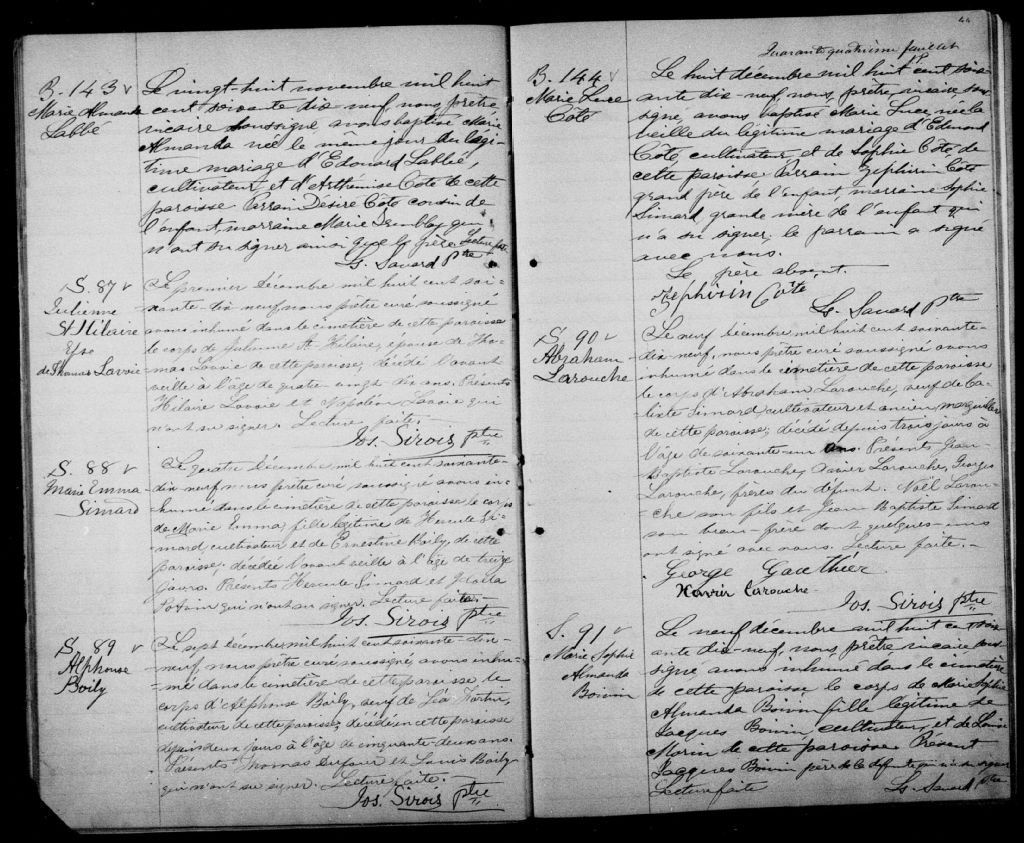 B. 143 v
Marie Almanda
Labbé
Le vingt-huit novembre mil huit
cent soixante dix-neuf, nous prêtre
vicaire soussigné, avons baptisé Marie
Almanda née le même jour du légi-
time mariage d'Edouard Labbé,
cultivateur, et d'Arthémise Côté de cette
paroisse Parrain Desiré Côté cousin de
l'enfant, marraine Marie Tremblay qui
n'ont su signer ainsi que le père. Lecture faite.
Ls. Savard Ptre
S. 87 v
Julienne
St Hilaire
Epse
de Thomas Lavoie
Le premier Décembre mil huit cent soi-
xante-dix-neuf nous prêtre curé soussigné
avons inhumé dans le cimetière de cette paroisse
le corps de Julienne St. Hilaire, épouse de Tho-
mas Lavoie de cette paroisse, décédée l'avant
veille à l'âge de quatre-vingt-dix ans. Présents
Hilaire Lavoie et Napoléon Lavoie qui
n'ont su signer. Lecture faite.
Jos. Sirois ptre
S. 88 v
Marie Emma
Simard
Le quatre Décembre mil huit cent soixante-
dix-neuf, nous prêtre curé soussigné avons in-
humé dans le cimetière de cette paroisse le corps
de Marie Emma, fille légitime de Hercule Si-
mard, cultivateur et de Ernestine Boily de cette
paroisse, décédée l'avant veille à l'âge de treize
jours. Présents Hercule Simard et
Potvin qui n'ont su signer. Lecture faite.
Jos. Sirois ptre
S. 89 v
Alphonse
Boily
Le sept décembre, mil huit cent soixante-dix-
neuf, nous prêtre curé soussigné, avons inhu-
mé dans le cimetière de cette paroisse le
corps d'Alphonse Boily, veuf de Léa Fortin,
cultivateur de cette paroisse, décédé en cette paroisse
depuis deux jours à l'âge de cinquante-deux ans.
Présents Thomas Dufour et Louis Boily
qui n'ont su signer. Lecture faite.
Jos. Sirois ptre
44
Quarante quatrième feuillet
B. 144 v
Marie Luce
Côté
Le huit décembre mil huit cent soix-
ante dix-neuf, nous, prêtre, vicaire sous-
signé, avons baptisé Marie Luce, née la
veille du légitime mariage d'Edmond
Côté, cultivateur, et de Sophie Côté, de
cette paroisse Parrain Zéphirin Côté
grand père de l'enfant, marraine Sophie
Simard grande mère de l'enfant qui
n'a su signer, le parrain a signé
avec nous.
Le père absent.
Zephirin Côté
Ls. Savard Ptre
S. 90 v
Abraham
Larouche
Le neuf Décembre, mil huit cent soixante-
dix-neuf, nous prêtre curé soussigné avons
inhumé dans le cimetière de cette paroisse
le corps d'Abraham Larouche, veuf de Ca-
lixte Simard, cultivateur et ancien marguillier
de cette paroisse, décédé depuis trois jours à
l'âge de soixante-un ans. Présents Jean-
Baptiste Larouche, Xavier Larouche, Georges
Larouche, frères du défunt. Noël Larou-
che son fils et Jean Baptiste Simard
son beau-frère dont quelques-uns
ont signé avec nous. Lecture faite.
George Gauthier
Xavier Larouche
Jos. Sirois ptre
S. 91 v
Marie Sophie
Almanda
Boivin
Le neuf décembre mil huit cent soix-
ante dix-neuf, nous, prêtre vicaire sous-
signé, avons inhumé dans le cimetière
de cette paroisse, le corps de Marie Sophie
Almanda Boivin fille légitime de
Jacques Boivin, cultivateur, et de Louise
Morin de cette paroisse Présent
Jacques Boivin père de la défunte qui n'a su signer
Lecture faite
Ls. Savard ptre